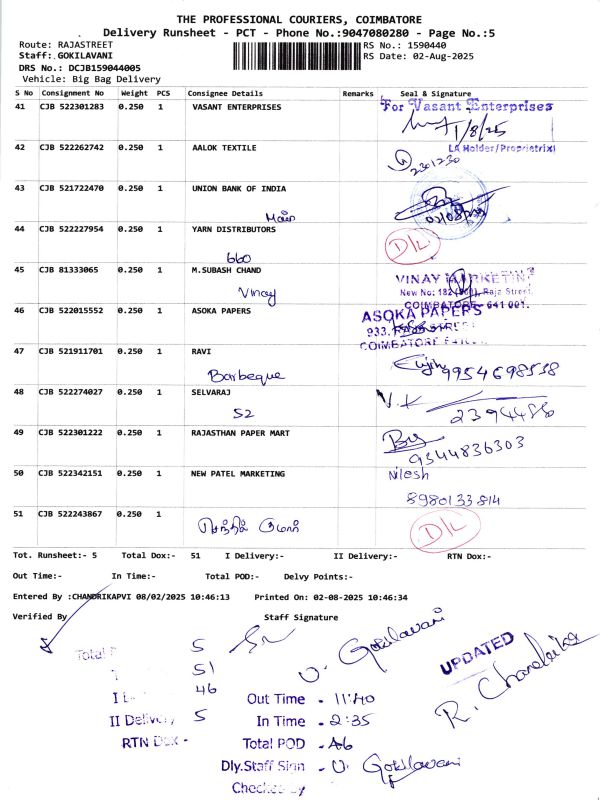 THE PROFESSIONAL COURIERS, COIMBATORE
Delivery Runsheet - PCT - Phone No.:9047080280 - Page No.:5
Route: RAJASTREET
RS No.: 1590440
Staff: GOKILAVANI
RS Date: 02-Aug-2025
DRS No.: DCJB159044005
Vehicle: Big Bag Delivery
S No Consignment No Weight PCS Consignee Details Remarks Seal & Signature
41 CJB 522301283 0.250 1 VASANT ENTERPRISES For Vasant Enterprises
1/8/25
LA Holder/Proprietrix
42 CJB 522262742 0.250 1 AALOK TEXTILE
2301230
43 CJB 521722470 0.250 1 UNION BANK OF INDIA
Main
44 CJB 522227954 0.250 1 YARN DISTRIBUTORS D/L
660
45 CJB 81333065 0.250 1 M.SUBASH CHAND VINAY MARKETING
Vinay New No: 182 Raja Street,
COIMBATORE - 641 001.
46 CJB 522015552 0.250 1 ASOKA PAPERS ASOKA PAPERS
933,
COIMBATORE
47 CJB 521911701 0.250 1 RAVI
Barbeque 9954698558
48 CJB 522274027 0.250 1 SELVARAJ V.K
52 2394486
49 CJB 522301222 0.250 1 RAJASTHAN PAPER MART
9344836303
50 CJB 522342151 0.250 1 NEW PATEL MARKETING Nilesh
8980133814
51 CJB 522243867 0.250 1
செந்தில் குமார் D/L
Tot. Runsheet:- 5 Total Dox:- 51 I Delivery:- II Delivery:- RTN Dox:-
Out Time:- In Time:- Total POD:- Delvy Points:-
Entered By :CHANDRIKAPVI 08/02/2025 10:46:13 Printed On: 02-08-2025 10:46:34
Verified By Staff Signature
Total 5
51 U. Gokilavani
46
UPDATED
R. Chandrika
II Delivery 5
RTN Dox -
Out Time - 11:40
In Time - 2:35
Total POD - 46
Dly.Staff Sign - U. Gokilavani
Checked by